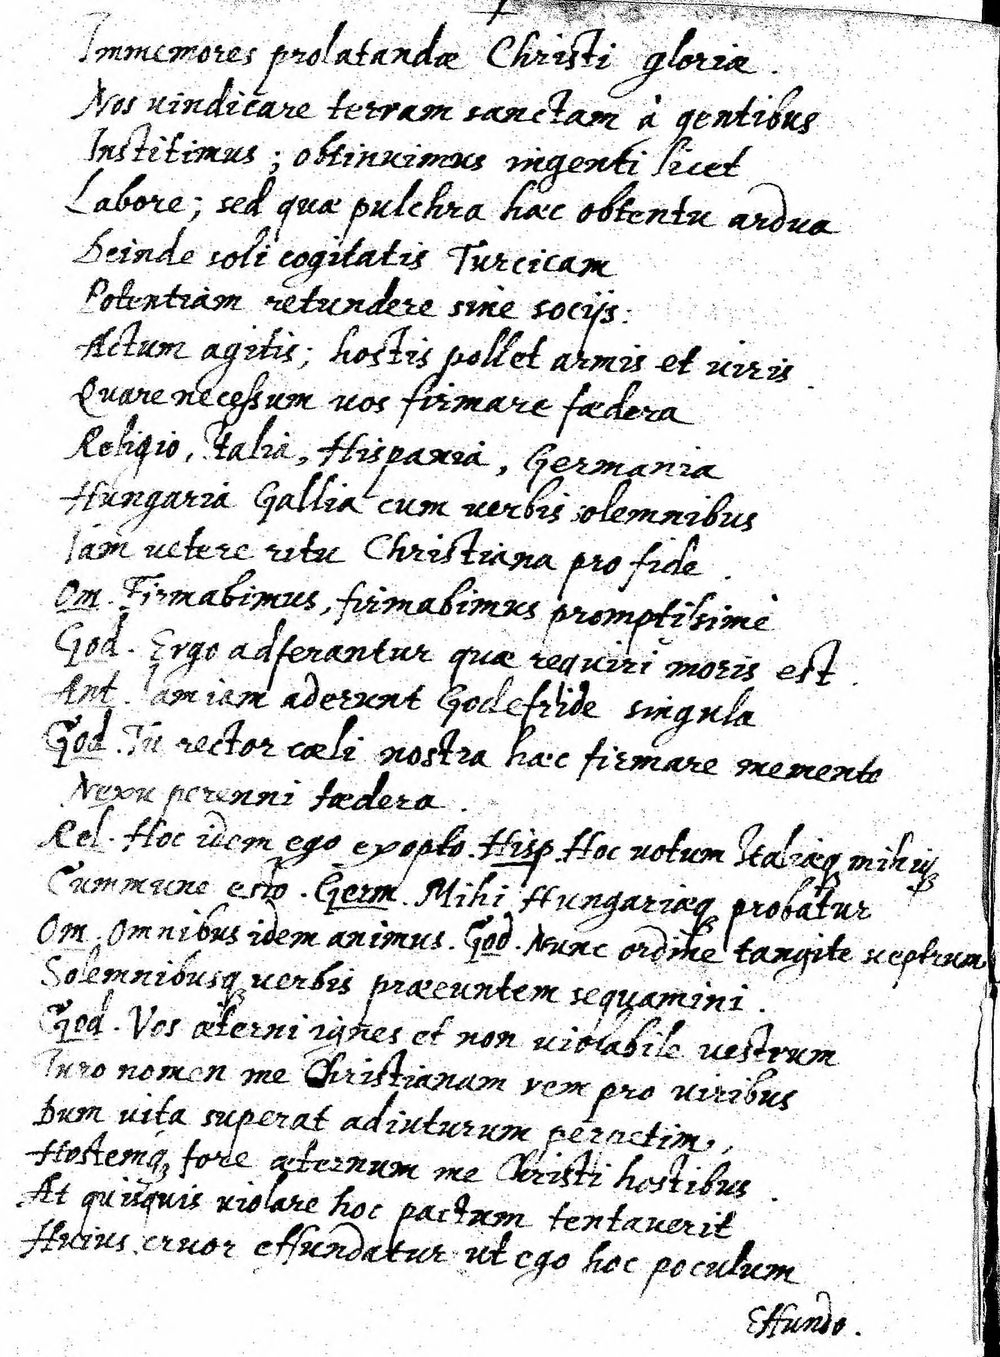 Immemores prolatandæ Christi gloriæ.
Nos uindicare terram sanctam à gentibus
Institimus; obtinuimus ingenti licet
Labore; sed quæ pulchra hæc obtentu ardua
Deinde soli cogitatis Turcicam
Potentiam retundere sine socijs:
Actum agitis; hostis pollet armis et uiris.
Quare necessum uos firmare fædera
Religio, Italia, Hispania, Germania
Hungaria Gallia cum uerbis solemnibus
Iam uetere ritu Christiana pro fide.
Om. Firmabimus, firmabimus promptissime
God. Ergo adferantur quæ requiri moris est.
Ant. Iam iam aderunt Godefride singula
God. Tu rector cæli nostra hæc firmare memento
Nexu perenni fædera.
Rel. Hoc idem ego exopto. Hisp. Hoc uotum Italiæq; mihiq;
Cummune esto. Germ. Mihi Hungariæq; probatur
Om. Omnibus idem animus. God. Nunc ordine tangite sceptrum
Solemnibusq; uerbis præeuntem sequamini.
God. Vos æterni ignes et non uiolabile uestrum
Iuro nomen me Christianam rem pro uiribus
Dum uita superat adiuturum
Hostemq; fore æternum me Christi hostibus.
At quisquis uiolare hoc pactum tentauerit
Huius cruor effundatur ut ego hoc poculum
Effundo.